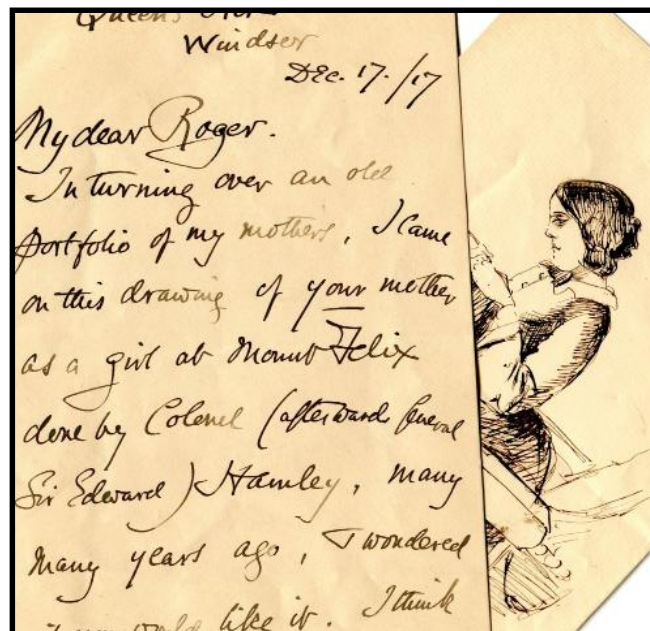 Queen's
Windsor
Dec. 17. /17
My dear Roger.
In turning over an old
portfolio of my mothers, I came
on this drawing of your mother
as a girl at Mount Felix
done by Colonel (afterwards General
Sir Edward) Hamley, many
many years ago, I wondered
if you would like it. I think